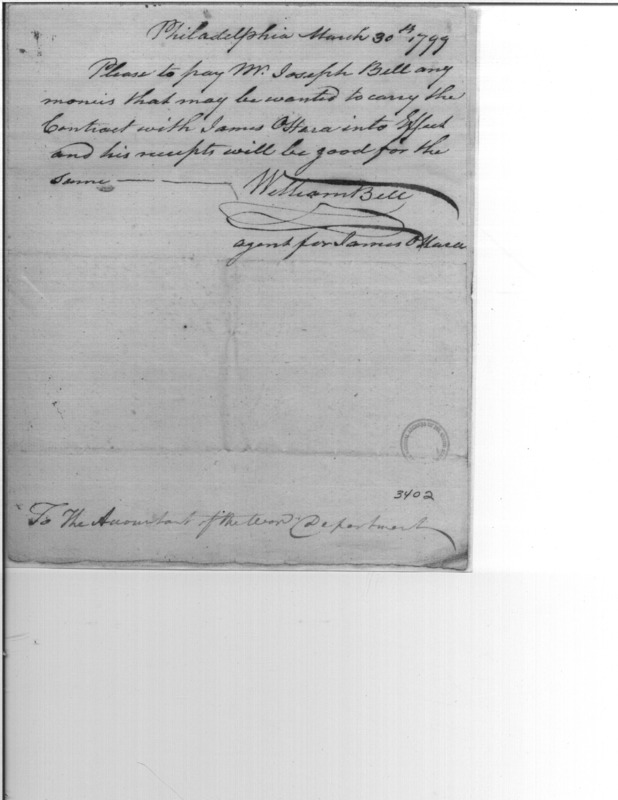 Philadelphia March 30th 1799
Please to pay Mr. Joseph Bell any
moneis that may be wanted to carry the
Contract with James OHara into Effect
and his receipts will be good for the
same
William Bell
agent for James OHara
3402
To The Accountant of the War Department